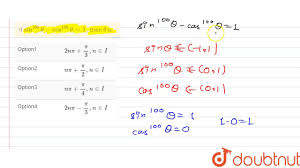 If sin¹⁰⁰θ - cos¹⁰⁰θ = 1, then θ is
Option1 2nπ + π/3, n ∈ I
Option2 nπ + π/2, n ∈ I
Option3 nπ + π/4, n ∈ I
Option4 2nπ - π/3, n ∈ I
sin¹⁰⁰θ - cos¹⁰⁰θ = 1
sinθ ∈ (-1,1)
sin¹⁰⁰θ ∈ (0,1)
cos¹⁰⁰θ ∈ (0,1)
sin¹⁰⁰θ = 1
cos¹⁰⁰θ = 0
1-0=1
doubtnut